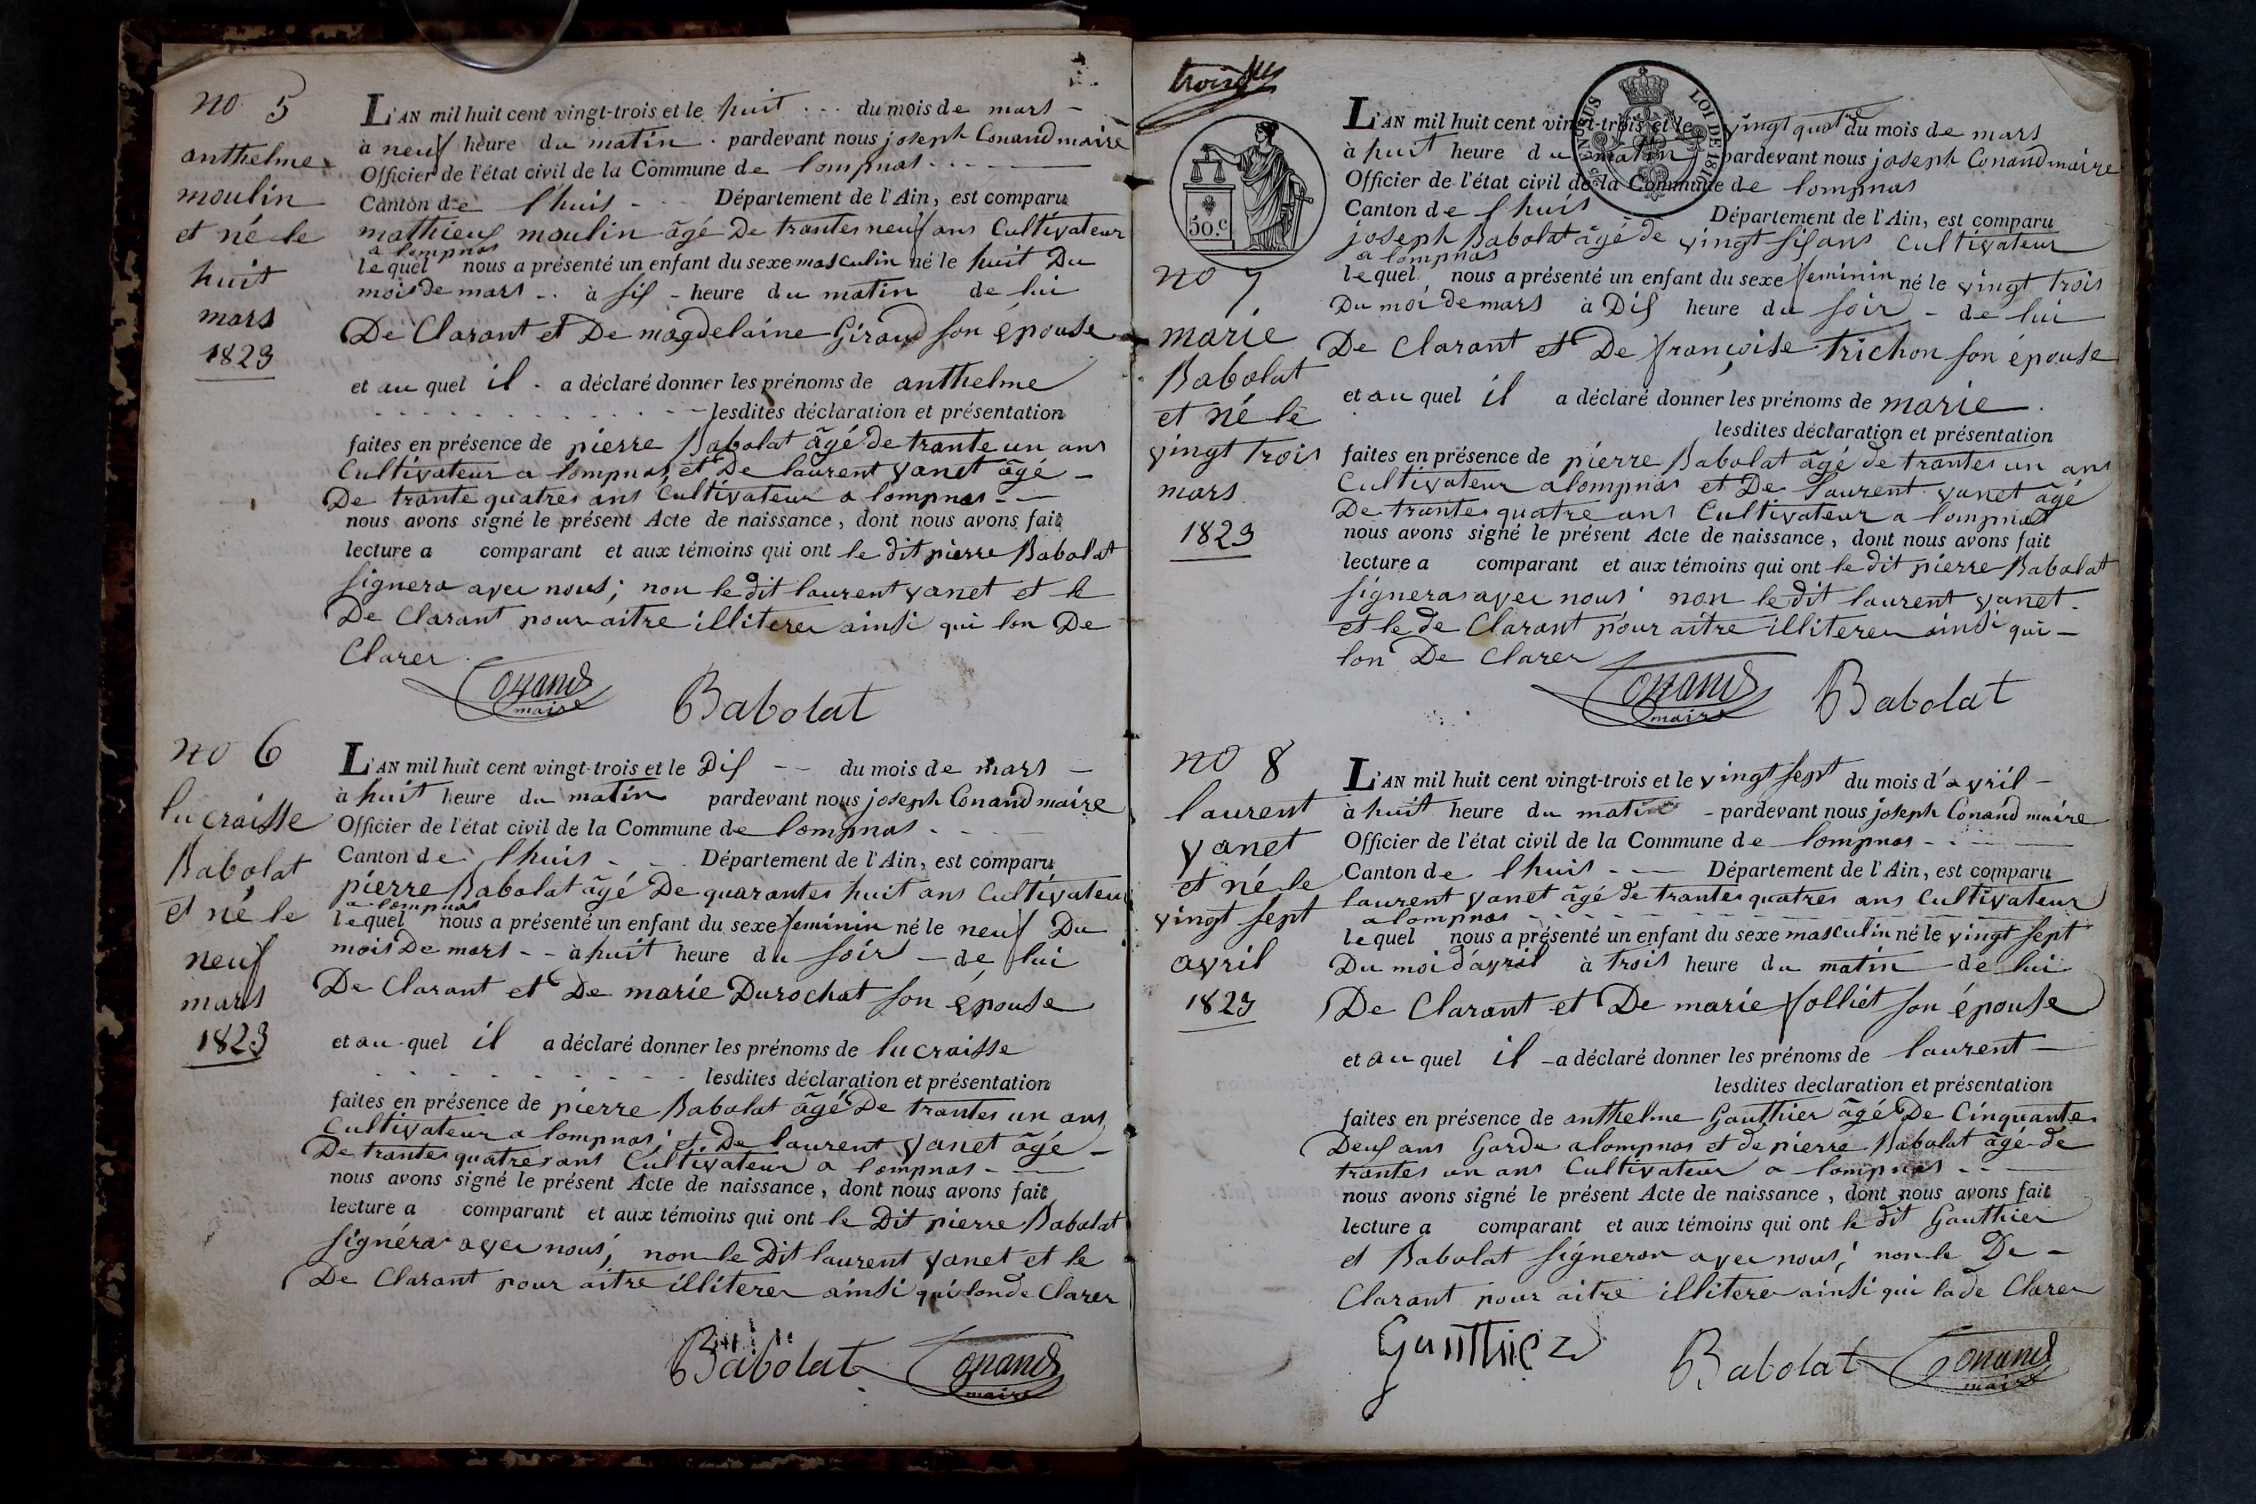 no 5
anthelme
moulin
et né le
huit
mars
1823
L'AN mil huit cent vingt-trois et le huit du mois de mars -
à neuf heure du matin pardevant nous joseph Conand maire
Officier de l'état civil de la Commune de lompnas
Canton de lhuis - Département de l'Ain, est comparu
mathieu moulin âgé De trantes neuf ans Cultivateur
a lompnas
lequel nous a présenté un enfant du sexe masculin né le huit Du
mois de mars - à sis - heure du matin de lui
De Clarant et De magdelaine Giraud son épouse
et au quel il a déclaré donner les prénoms de anthelme
lesdites déclaration et présentation
faites en présence de pierre Babolat âgé de trante un ans
Cultivateur a lompnas, et De laurent vanet âgé -
De trante quatres ans Cultivateur a lompnas - -
nous avons signé le présent Acte de naissance, dont nous avons fait
lecture a comparant et aux témoins qui ont le dit pierre Babolat
signera avec nous; non le dit laurent vanet et le
De Clarant pour aitre illiterer ainsi qui lon De
Clarer
Conand
maire
Babolat
no 6
lucraisse
Babolat
et né le
neuf
mars
1823
L'AN mil huit cent vingt-trois et le Dis - - du mois de mars -
à huit heure du matin pardevant nous joseph Conand maire
Officier de l'état civil de la Commune de lompnas -
Canton de lhuis - - Département de l'Ain, est comparu
pierre Babolat âgé De quarantes huit ans Cultivateur
a lompnas
lequel nous a présenté un enfant du sexe feminin né le neuf Du
mois De mars - - à huit heure du soir - de lui
De Clarant et De marie Durochat son épouse
et au quel il a déclaré donner les prénoms de lucraisse
lesdites déclaration et présentation
faites en présence de pierre Babolat âgé De trantes un ans
Cultivateur a lompnas; et De laurent vanet âgé -
De trantes quatres ans Cultivateur a lompnas - -
nous avons signé le présent Acte de naissance, dont nous avons fait
lecture a comparant et aux témoins qui ont le Dit pierre Babolat
signéra avec nous; non le Dit laurent vanet et le
De Clarant pour aitre illiterer ainsi qui lon de Clarer
Babolat
Conand
maire
trois
50.c
LOI DE 1816
no 7
marie
Babolat
et né le
vingt trois
mars
1823
L'AN mil huit cent vingt-trois et le vingt quatre du mois de mars
à huit heure du matin pardevant nous joseph Conand maire
Officier de l'état civil de la Commune de lompnas
Canton de lhuis Département de l'Ain, est comparu
joseph Babolat âgé de vingt sis ans Cultivateur
a lompnas
lequel nous a présenté un enfant du sexe feminin né le vingt trois
Du moi de mars à Dis heure du soir - de lui
De Clarant et De françoise trichon son épouse
et au quel il a déclaré donner les prénoms de marie
lesdites déclaration et présentation
faites en présence de pierre Babolat âgé de trantes un ans
Cultivateur a lompnas et De laurent vanet âgé
De trantes quatre ans Cultivateur a lompnas
nous avons signé le présent Acte de naissance, dont nous avons fait
lecture a comparant et aux témoins qui ont le dit pierre Babolat
signeras avec nous; non le dit laurent vanet
et le de Clarant pour aitre illiterer ainsi qui -
lon De Clarer
Conand
maire
Babolat
no 8
laurent
vanet
et né le
vingt sept
avril
1823
L'AN mil huit cent vingt-trois et le vingt sept du mois d'avril -
à huit heure du matin - pardevant nous joseph Conand maire
Officier de l'état civil de la Commune de lompnas -
Canton de lhuis - - Département de l'Ain, est comparu
laurent vanet âgé de trantes quatres ans Cultivateur
a lompnas
lequel nous a présenté un enfant du sexe masculin né le vingt sept
Du moi d'avril à trois heure du matin - de lui
De Clarant et De marie folliet son épouse
et au quel il - a déclaré donner les prénoms de laurent -
lesdites déclaration et présentation
faites en présence de anthelme Gauthier âgé De Cinquante
Deus ans Garde a lompnas et de pierre Babolat âgé de
trantes un ans Cultivateur a lompnas - -
nous avons signé le présent Acte de naissance, dont nous avons fait
lecture a comparant et aux témoins qui ont le dit Gauthier
et Babolat signeron avec nous; non le De -
Clarant pour aitre illiterer ainsi qui la de Clarer
Gauthier
Babolat
Conand
maire